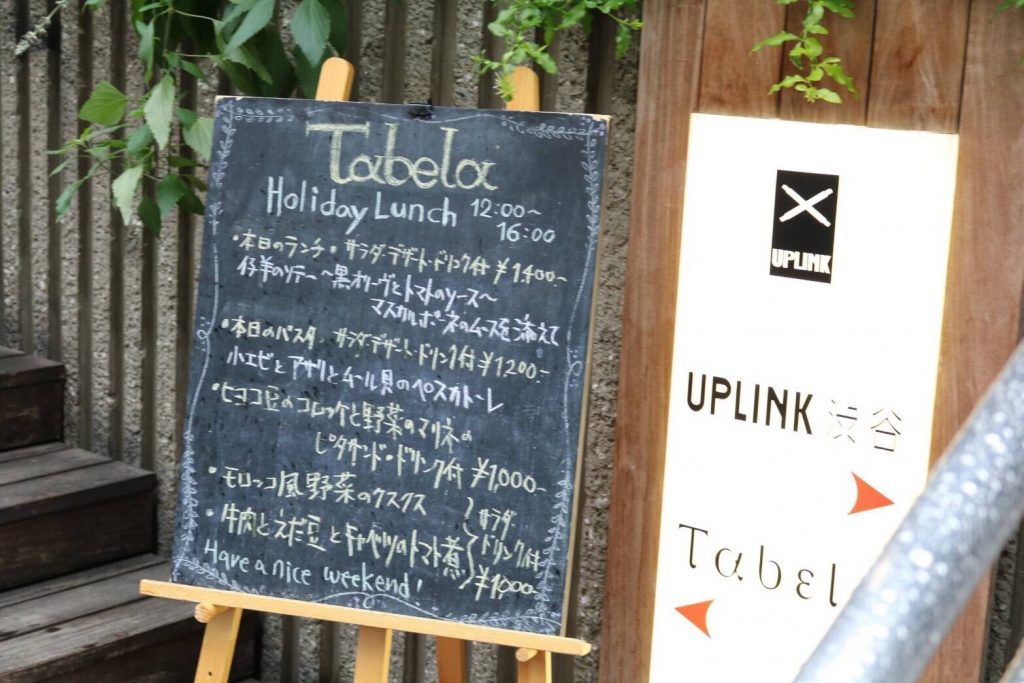 Tabela
Holiday Lunch 12:00~
16:00
・本日のランチ・サラダ・デザート・ドリンク付 ¥1400-
仔羊のソテー ～黒オリーヴとトマトのソース～
マスカルポーネのムースを添えて
・本日のパスタ サラダ・デザート・ドリンク付 ¥1200-
小エビとアサリとムール貝のペスカトーレ
・ヒヨコ豆のコロッケと野菜のマリネの
ピタサンド・ドリンク付 ¥1,000-
・モロッコ風野菜のクスクス
・牛肉とえだ豆とキャベツのトマト煮
サラダ
ドリンク付
¥1,000-
Have a nice weekend!
UPLINK
UPLINK 渋谷
Tabel